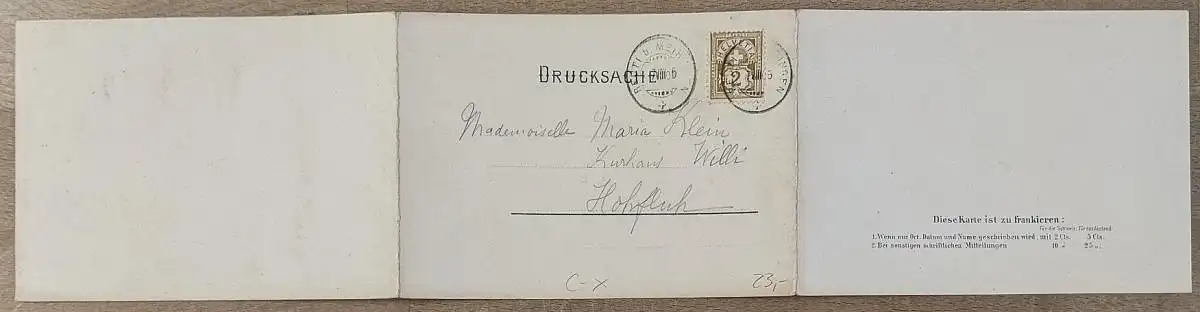 DRUCKSACHE
HELVETIA
2
Mademoiselle Maria Klein
Kurhaus Willi
Hohfluh
C-X
23,-
Diese Karte ist zu frankieren:
Für die Schweiz, für das Ausland
1. Wenn nur Ort, Datum und Name geschrieben wird, mit 2 Cts. 5 Cts.
2. Bei sonstigen schriftlichen Mitteilungen 10 " 25 "